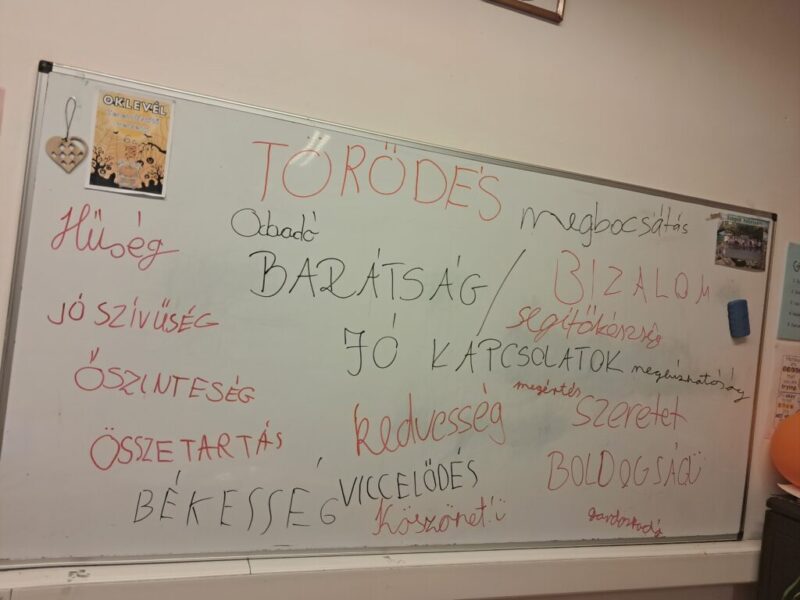 OKLEVÉL
TÖRŐDÉS
megbocsátás
Odaadó
Hűség
BARÁTSÁG /
BIZALOM
JÓ SZÍVŰSÉG
segítőkészség
JÓ KAPCSOLATOK
megbízhatóság
ŐSZINTESÉG
megértés
kedvesség
szeretet
ÖSSZETARTÁS
VICCELŐDÉS
BOLDOGSÁG
BÉKESSÉG
Köszönet!